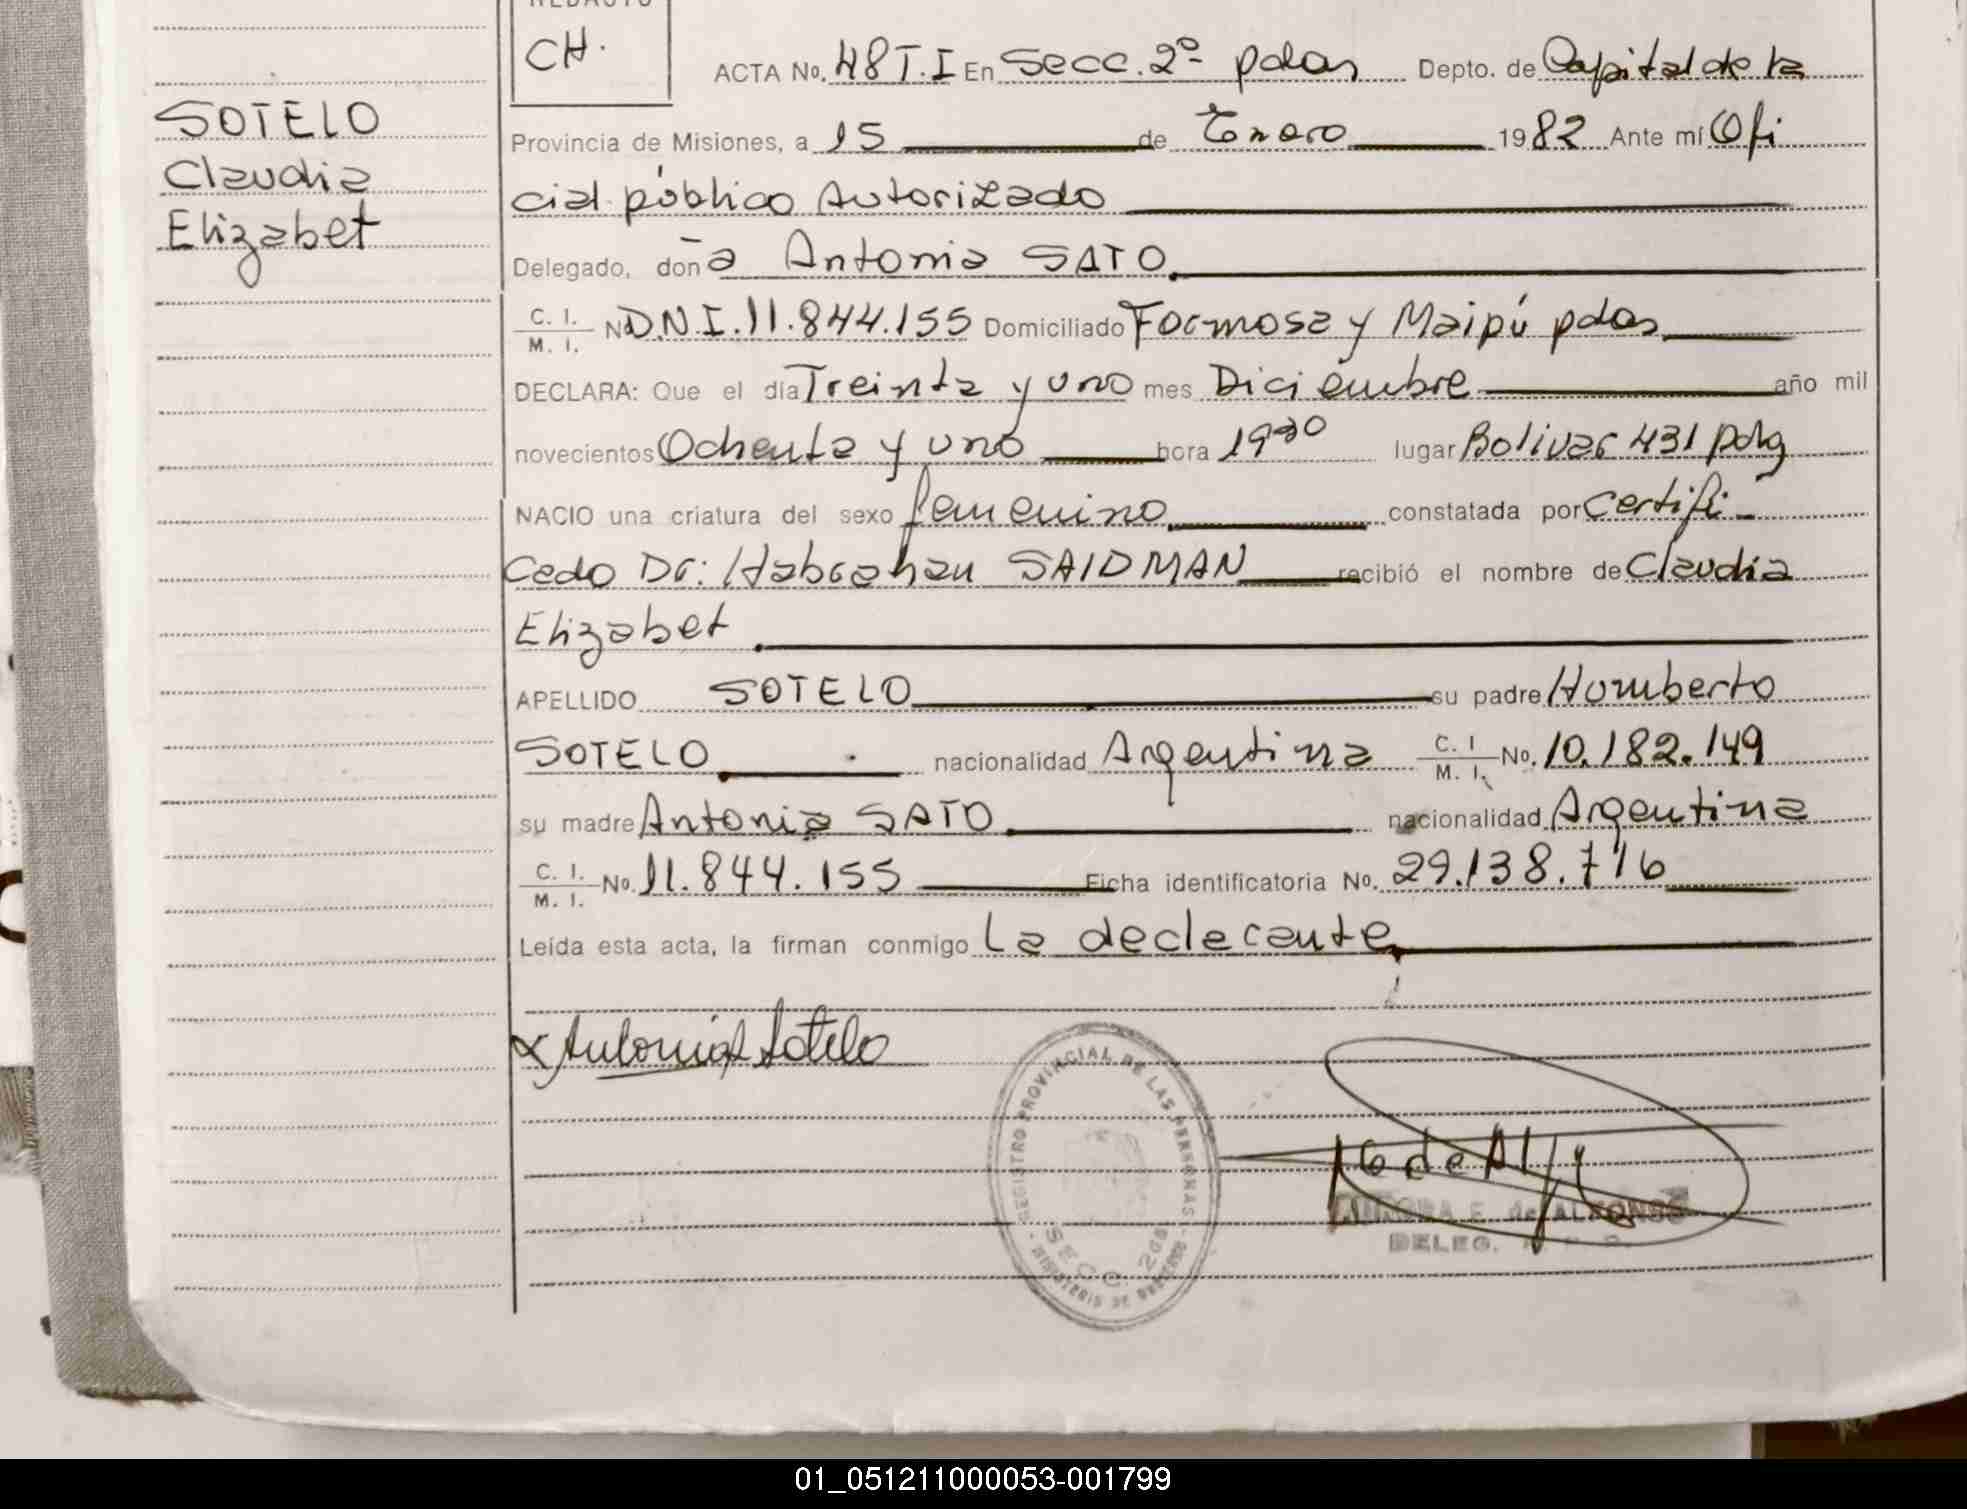 REDACTO
CH.
ACTA No. 48 T. I En Secc. 2º pdas Depto. de Capital de la
SOTELO
Claudia
Elizabet
Provincia de Misiones, a 15 de Enero 1982 Ante mí Ofi
cial público Autorizado
Delegado, doña Antonia SATO
C. I. / M. I. No D.N.I. 11.844.155 Domiciliado Formosa y Maipú pdas
DECLARA: Que el día Treinta y uno mes Diciembre año mil
novecientos Ochenta y uno hora 19 30 lugar Bolivar 431 pdas
NACIO una criatura del sexo femenino constatada por Certifi-
cado Dr: Habrahan SAIDMAN recibió el nombre de Claudia
Elizabet
APELLIDO SOTELO su padre Humberto
SOTELO nacionalidad Argentina C. I / M. I. No. 10.182.149
su madre Antonia SATO nacionalidad Argentina
C. I. / M. I. No. 11.844.155 Ficha identificatoria No. 29.138.716
Leída esta acta, la firman conmigo La declarante
Antonia Sotelo
REGISTRO PROVINCIAL DE LAS PERSONAS
SECC. 2da
MINISTERIO DE GOBIERNO
AURORA E. de ALFONSO
DELEG.
01_051211000053-001799